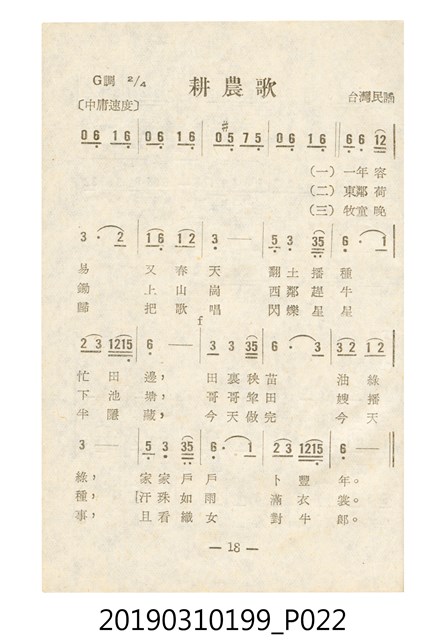 G調 2/4
耕農歌
〔中庸速度〕
台灣民謠
0 6 1 6 | 0 6 1 6 | 0 #5 7 5 | 0 6 1 6 || 6 6 12
(一) 一年容
(二) 東鄰荷
(三) 牧童晚
3 · 2 | 1 6 1 2 | 3 — | 5 3 35 | 6 · 1
易 又春天 翻土播種
鋤 上山崗 西鄰趕牛
歸 把歌唱 閃爍星星
f
2 3 1215 | 6 — | 3 3 35 | 6 · 3 | 3 2 1 2
忙田邊， 田裏秧苗 油綠
下池塘， 哥哥犂田 嫂播
半隱藏， 今天做完 今天
3 — | 5 3 35 | 6 · 1 | 2 3 1215 | 6 —
綠， 家家戶戶 卜豐年。
種， 汗珠如雨 滿衣裳。
事， 且看織女 對牛郎。
— 18 —
20190310199_P022